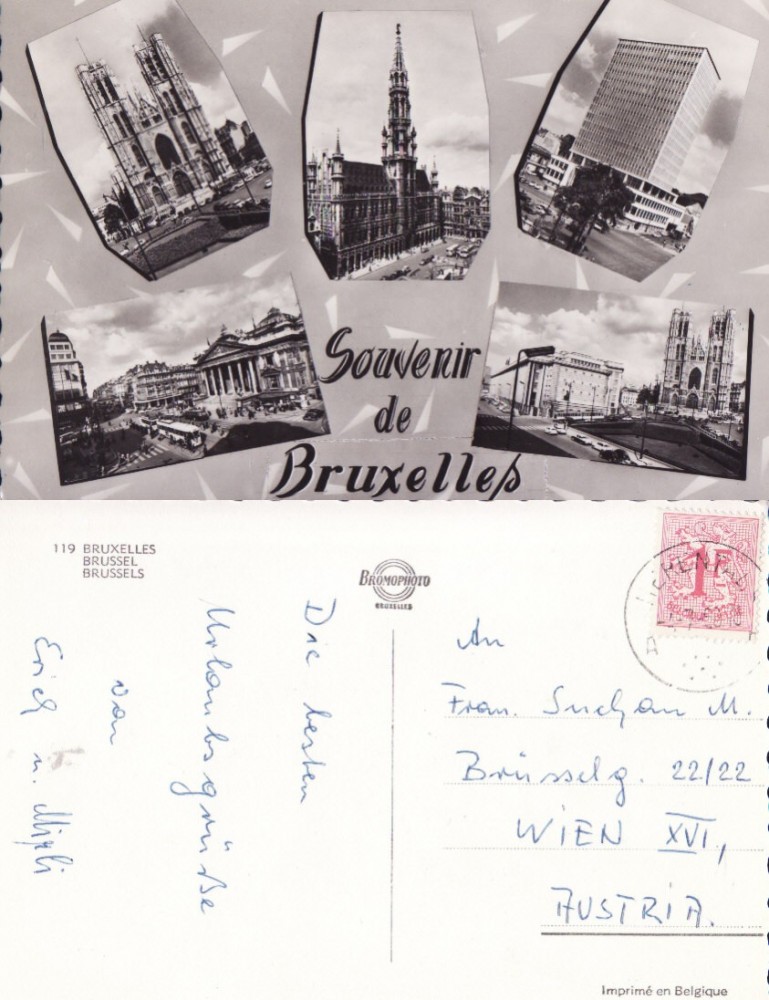 Souvenir
de
Bruxelles
119 BRUXELLES
BRUSSEL
BRUSSELS
BROMOPHOTO
BRUXELLES
1F
Die besten
Urlaubsgrüße
von
Erich u. Mizzli
An
Frau. Suchan M.
Brüsselg. 22/22
WIEN XVI,
AUSTRIA.
Imprimé en Belgique